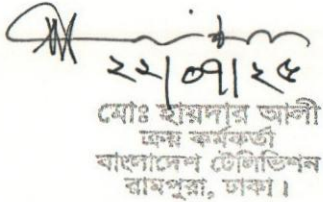 ২২/০৭/২৫
মোঃ হায়দার আলী
ক্রয় কর্মকর্তা
বাংলাদেশ টেলিভিশন
রামপুরা, ঢাকা।